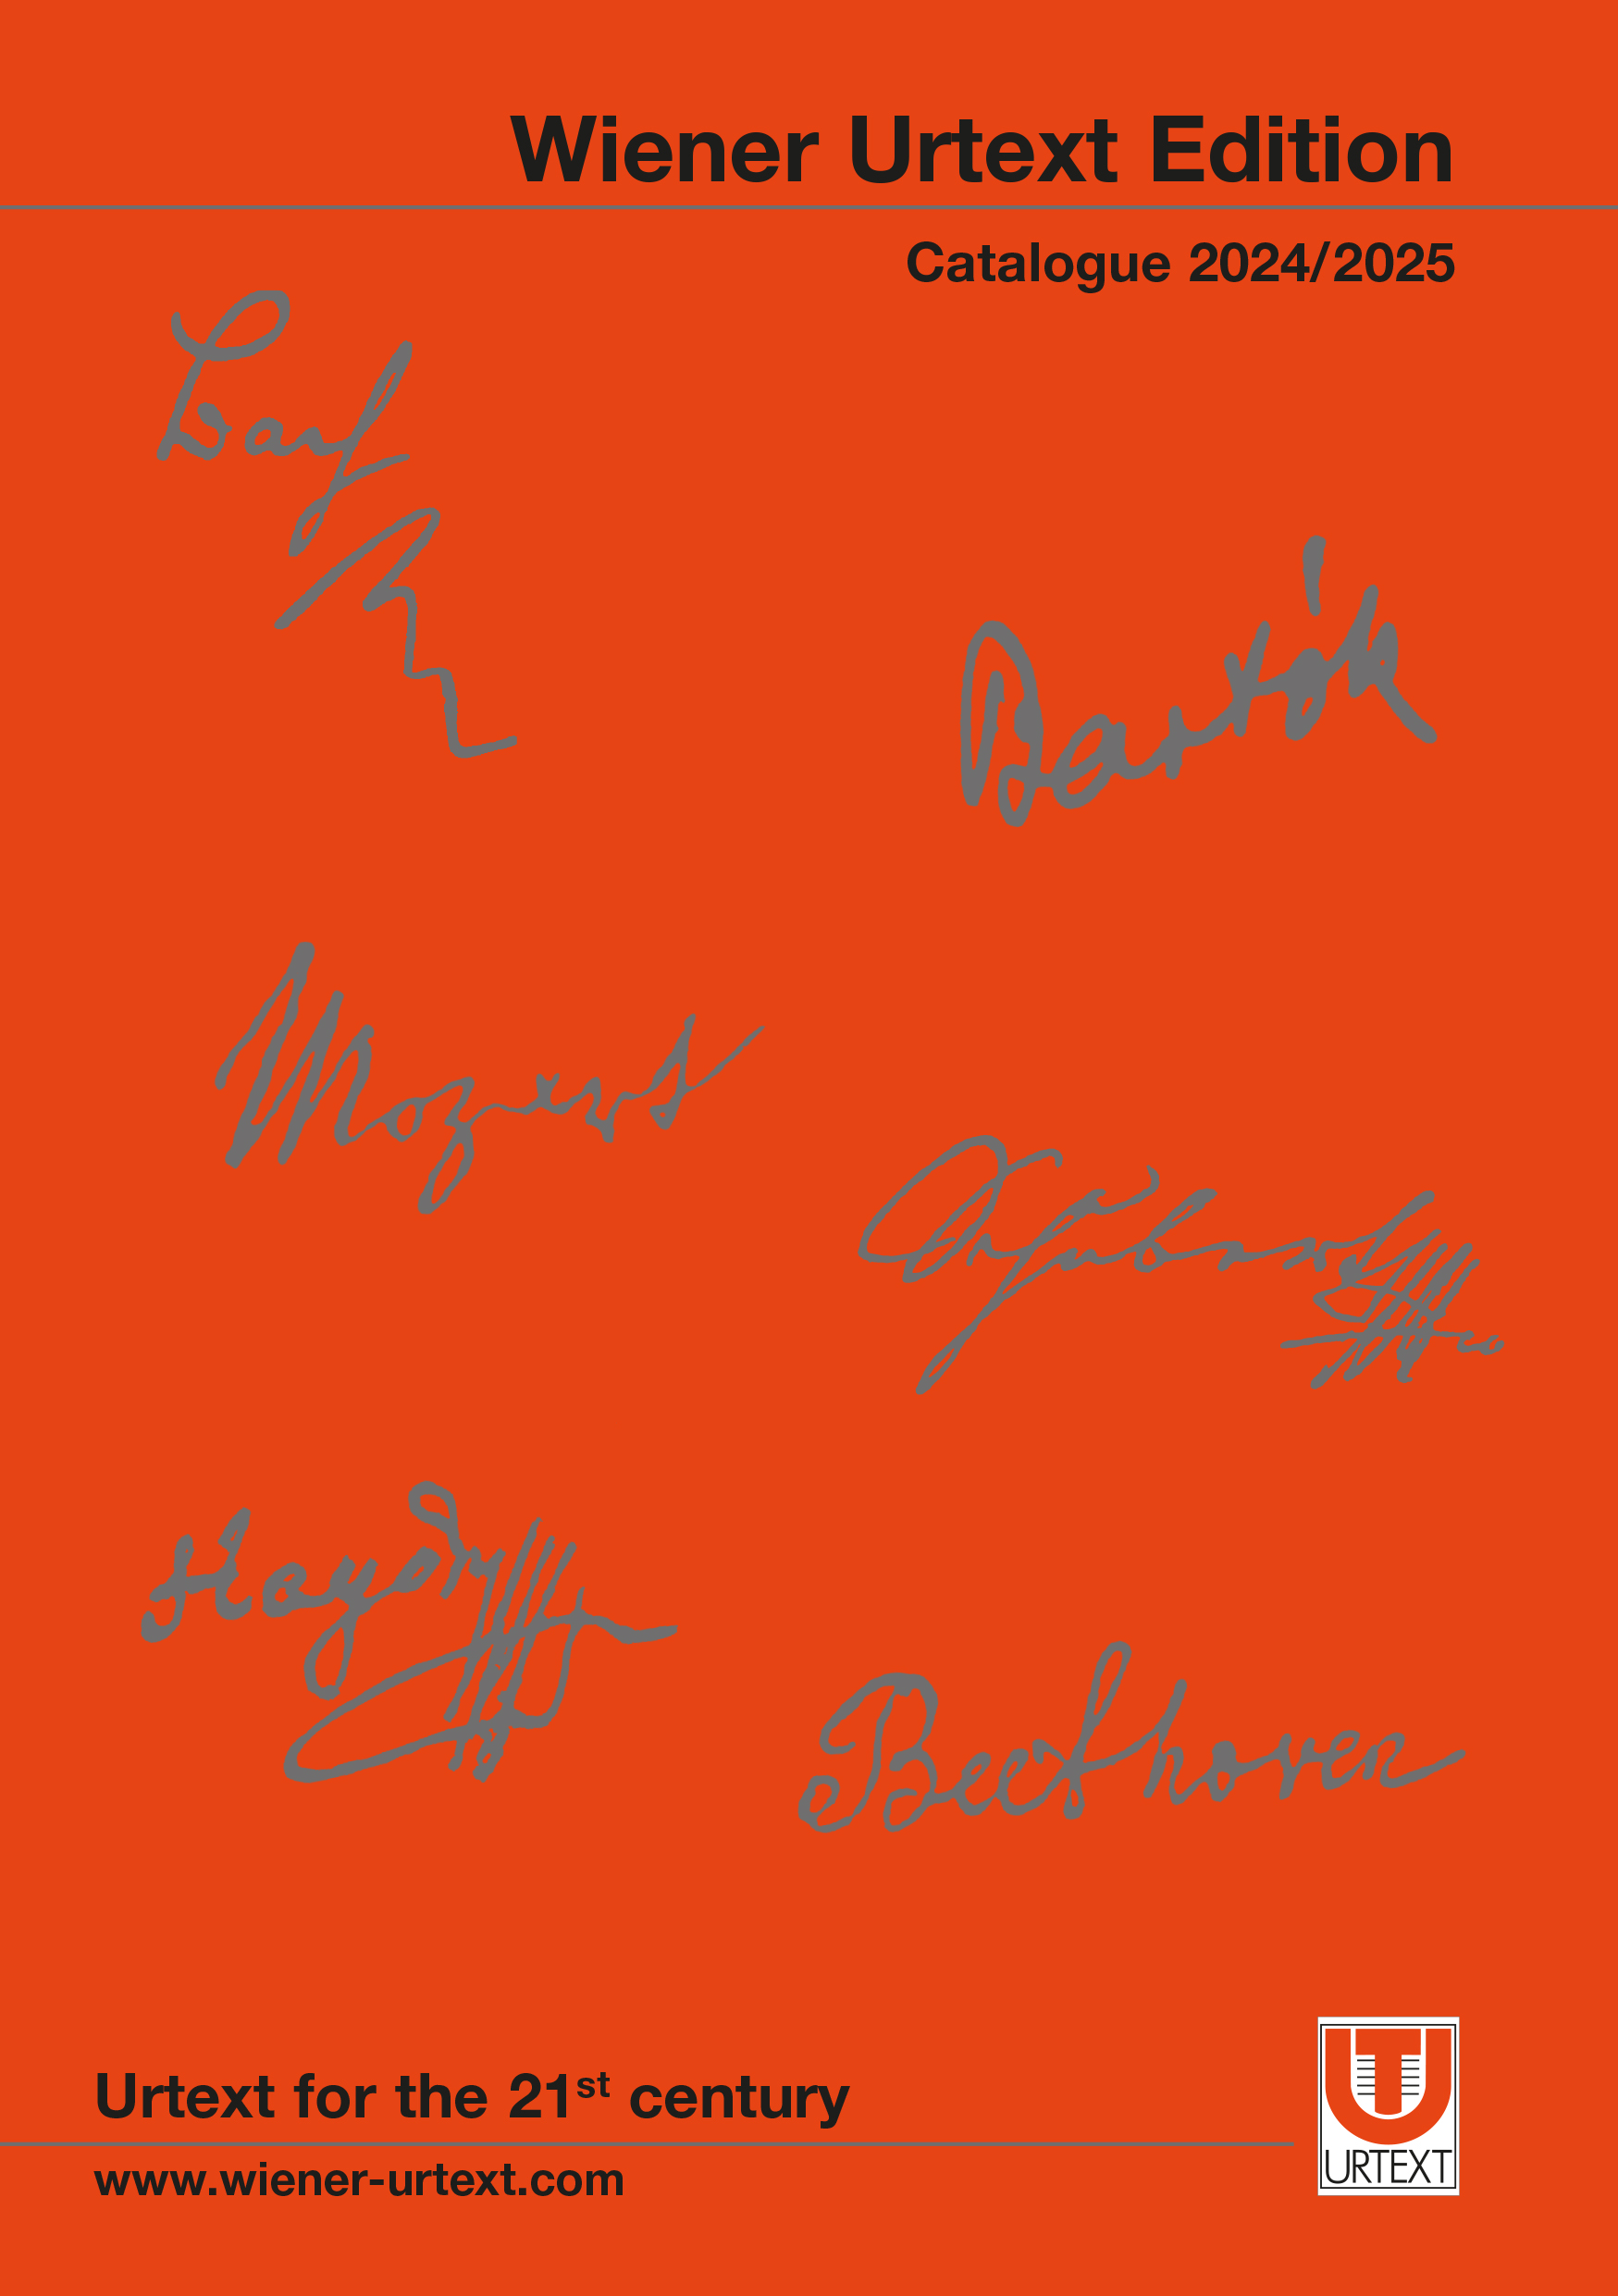 Wiener Urtext Edition
Catalogue 2024/2025
Bach
Bartók
Mozart
Haydn
Beethoven
Urtext for the 21st century
www.wiener-urtext.com
URTEXT